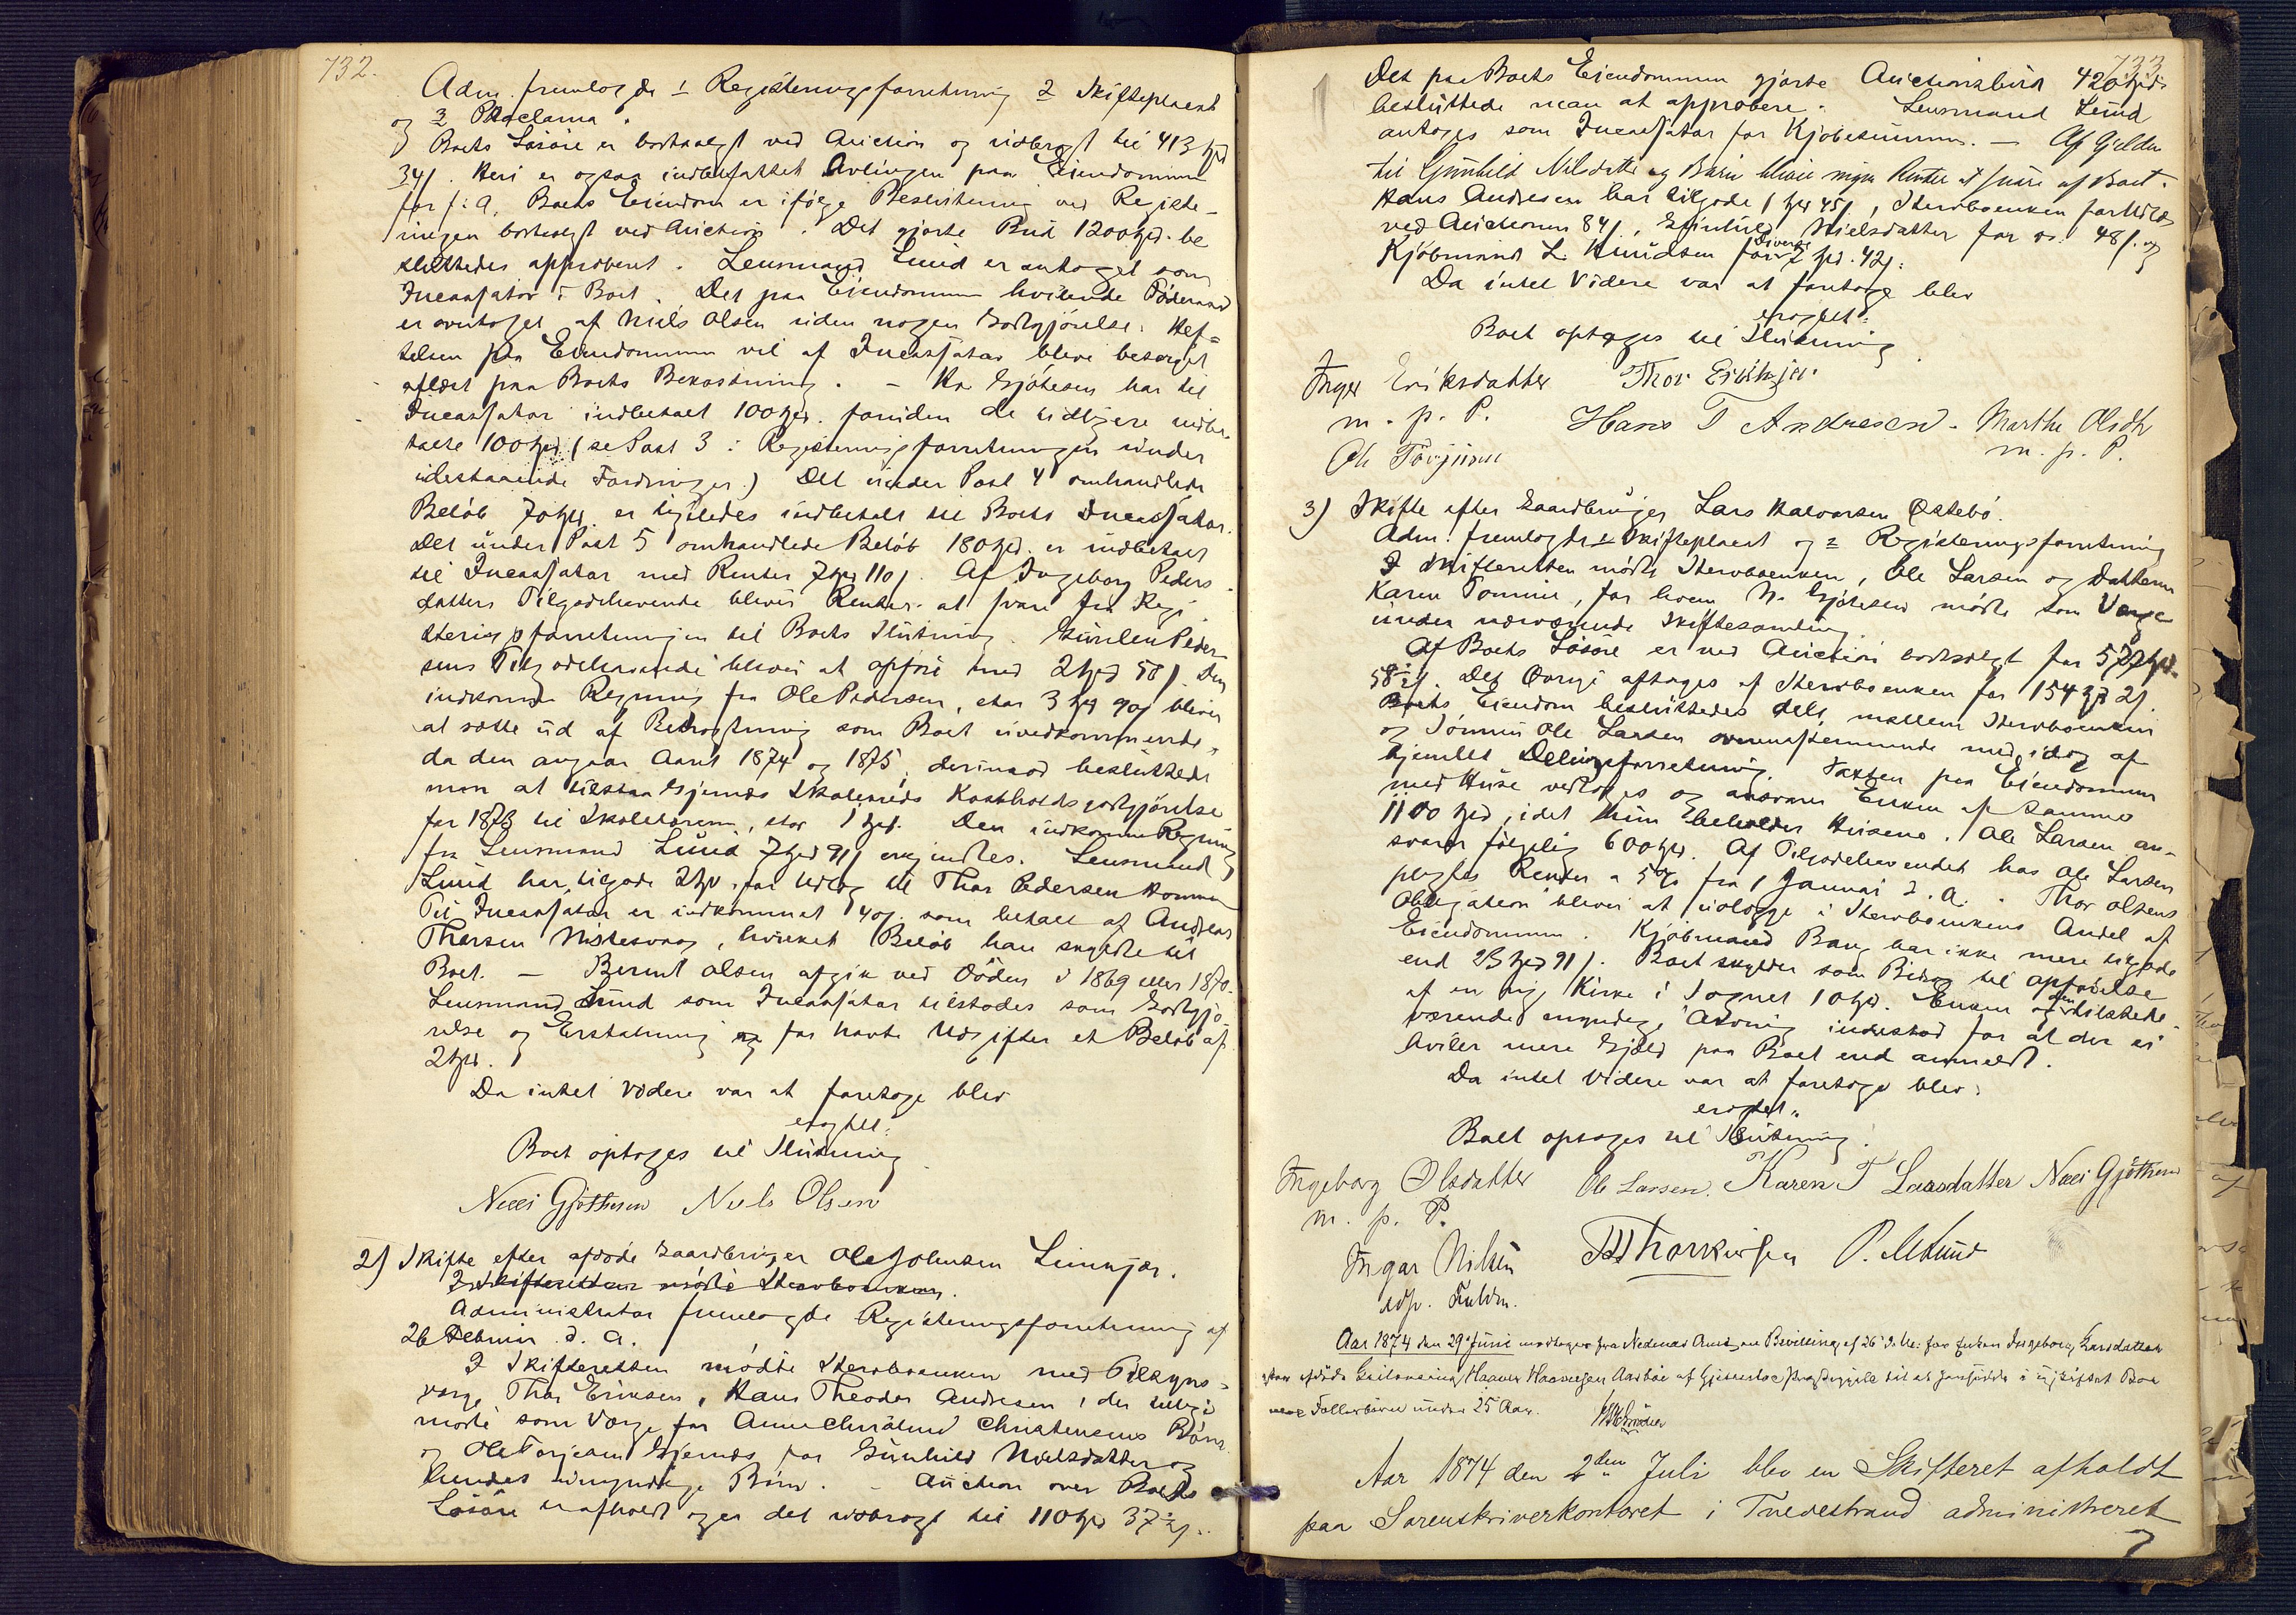 732.
Adm. fremlagde 1 Registreringsforretning 2 Skifteplacat
og 3 Proclama.
Boets Løsøre er bortsolgt ved Auction og udbragt til 413 Spd
34 s. Heri er ogsaa indbefattet Avlingen paa Eiendommen
for f. A. Boets Eiendom er ifølge Beslutning ved Registe-
ringen bortsolgt ved Auction. Det gjorte Bud 1200 Spd. be
sluttedes approberet. Lensmand Lund er antaget som
Incassator i Boet. Det paa Eiendommen hvilende Føderaad
er overtaget af Niels Olsen uden nogen Godtgjørelse. Hef-
telsen paa Eiendommen vil af Incassator blive besørget
aflæst paa Boets Bekostning. – N. Gjøthesen har til
Incassator indbetalt 100 Spd. foruden de tidligere indbe-
talte 100 Spd (se Post 3 i Registreringsforretningen under
udestaaende Fordringer.) Det under Post 4 omhandlede
Beløb 70 Spd. er ligeledes indbetalt til Boets Incassator.
Det under Post 5 omhandlede Beløb 180 Spd. er indbetalt
til Incassator med Renter 7 Spd 110 s. Af Ingeborg Peders-
datters Tilgodehavende bliver Renter at svare fra Regi-
streringsforretningen til Boets Slutning. Peder
sens Tilgodehavende bliver at opføre med 2 Spd 58 s. Den
indkomne Regning fra Ole Pedersen, stor 3 Spd 90 s bliver
at sætte ud af Betragtning som Boet uvedkommende,
da den angaar Aaret 1874 og 1875, derimod besluttede
man at tilstaa Gjernæs Skolekreds Kostholdsgodtgjørelse
for 1873 til Skolelæreren, stor 1 Spd. Den indkomne Regning
fra Lensmand Lund 7 Spd 91 s erkjendtes. Lensmand
Lund har tilgode 2 Spd for Udlæg til Thor Pedersen
Til Incassator er indkommet 40 s. som betalt af Andreas
Thorsen Nistesvaag, hvilket Beløb han skyldte til
Boet. – Bernt Olsen afgik ved Døden i 1869 eller 1870.
Lensmand Lund som Incassator tilstodes som Godtgjø
relse og Erstatning for havte Udgifter et Beløb af
2 Spd.
Da intet Videre var at foretage blev
eragtet:
Boet optages til Slutning.
Niels Gjøthesen Niels Olsen
2) Skifte efter afdøde Gaardbruger Ole Johnsen Leinkjær.
I Skifteretten mødte Stervboenken.
Administrator fremlagde Registreringsforretning af
26 Februar d. A.
I Skifteretten mødte Stervboenken med Tilsyns-
værge Thor Eriksen, Hans Theodor Andresen, der tillige
mødte som Værge for Anne Christensens Børn
og Ole Torjusen Gjernæs for Gunhild Nielsdatter og
hendes umyndige Børn. – Auction over Boets
Løsøre er afholdt og er det udbragt til 110 Spd 37½ s.
733
Det paa Boets Eiendommen gjorte Auctionsbud 420 Spd.
besluttede man at approbere. Lensmand Lund
antoges som Incassator for Kjøbesummen. – Af Gjelden
til Gunhild Nilsdatter og Børn bliver ingen Renter at svare af Boet.
Hans Andresen har tilgode 1 Spd 45 s, Stervboenken forholdt
ved Auctionen 84 s., Gunhild Nielsdatter for 48 s. og
Kjøbmand L. Knudsen for Diverse 2 Spd. 42 s.
Da intet Videre var at foretage blev
eragtet:
Boet optages til Slutning.
Inger Eriksdatter Thor Eriksen
m. p. P. Hans T Andresen. Marthe Olsdtr
Ole Torjusen m. p. P.
3) Skifte efter Gaardbruger Lars Halvorsen Østebø.
Adm. fremlagde 1 Skifteplacat og 2 Registreringsforretning
I Skifteretten mødte Stervboenken, Ole Larsen og Datteren
Karen Tomine, for hvem N. Gjøthesen mødte som Værge
under nærværende Skiftesamling.
Af Boets Løsøre er ved Auction bortsolgt for 577 Spd
58½ s. Det Øvrige aftages af Stervboenken for 154 Spd 2 s.
Boets Eiendom besluttedes delt mellem Stervboenken
og Sønnen Ole Larsen overensstemmende med idag af
hjemlet Delingsforretning. Taxten paa Eiendommen
med Huse vedtoges og ansvarer Enken af samme
1100 Spd, idet hun beholder Husene. Ole Larsen an-
svarer følgelig 600 Spd. Af Tilgodehavendet hos Ole Larsen
pligtes Renter a 5 % fra 1 Januar d. A. Thor Olsens
Obligation bliver at udlægge i Stervboenkens Andel af
Eiendommen. Kjøbmand Bang har ikke mere tilgode
end 23 Spd 91 s. Boet skylder som Bidrag til Opførelse
af en ny Kirke i Sognet 10 Spd. Enken og den tilstede-
værende myndige Arving indestod for at der ei
hviler mere Gjæld paa Boet end anmeldt.
Da intet Videre var at foretage blev:
eragtet:
Boet optages til Slutning.
Ingeborg Olsdatter Ole Larsen. Karen T Larsdatter Niels Gjøthesen
m. p. P.
Ingar Nilsen P. M Lund
Aar 1874 den 29 Juni modtoges fra Nedenæs Amt en Bevilling af 26 d. M. for Enken Ingeborg Larsdatter
efter afdøde Præstegjeld til at hensidde i uskiftet Boe
med Fællesbørn under 25 Aar.
Aar 1874 den 2den Juli blev en Skifteret afholdt
paa Sorenskriverkontoret i Tvedestrand administreret